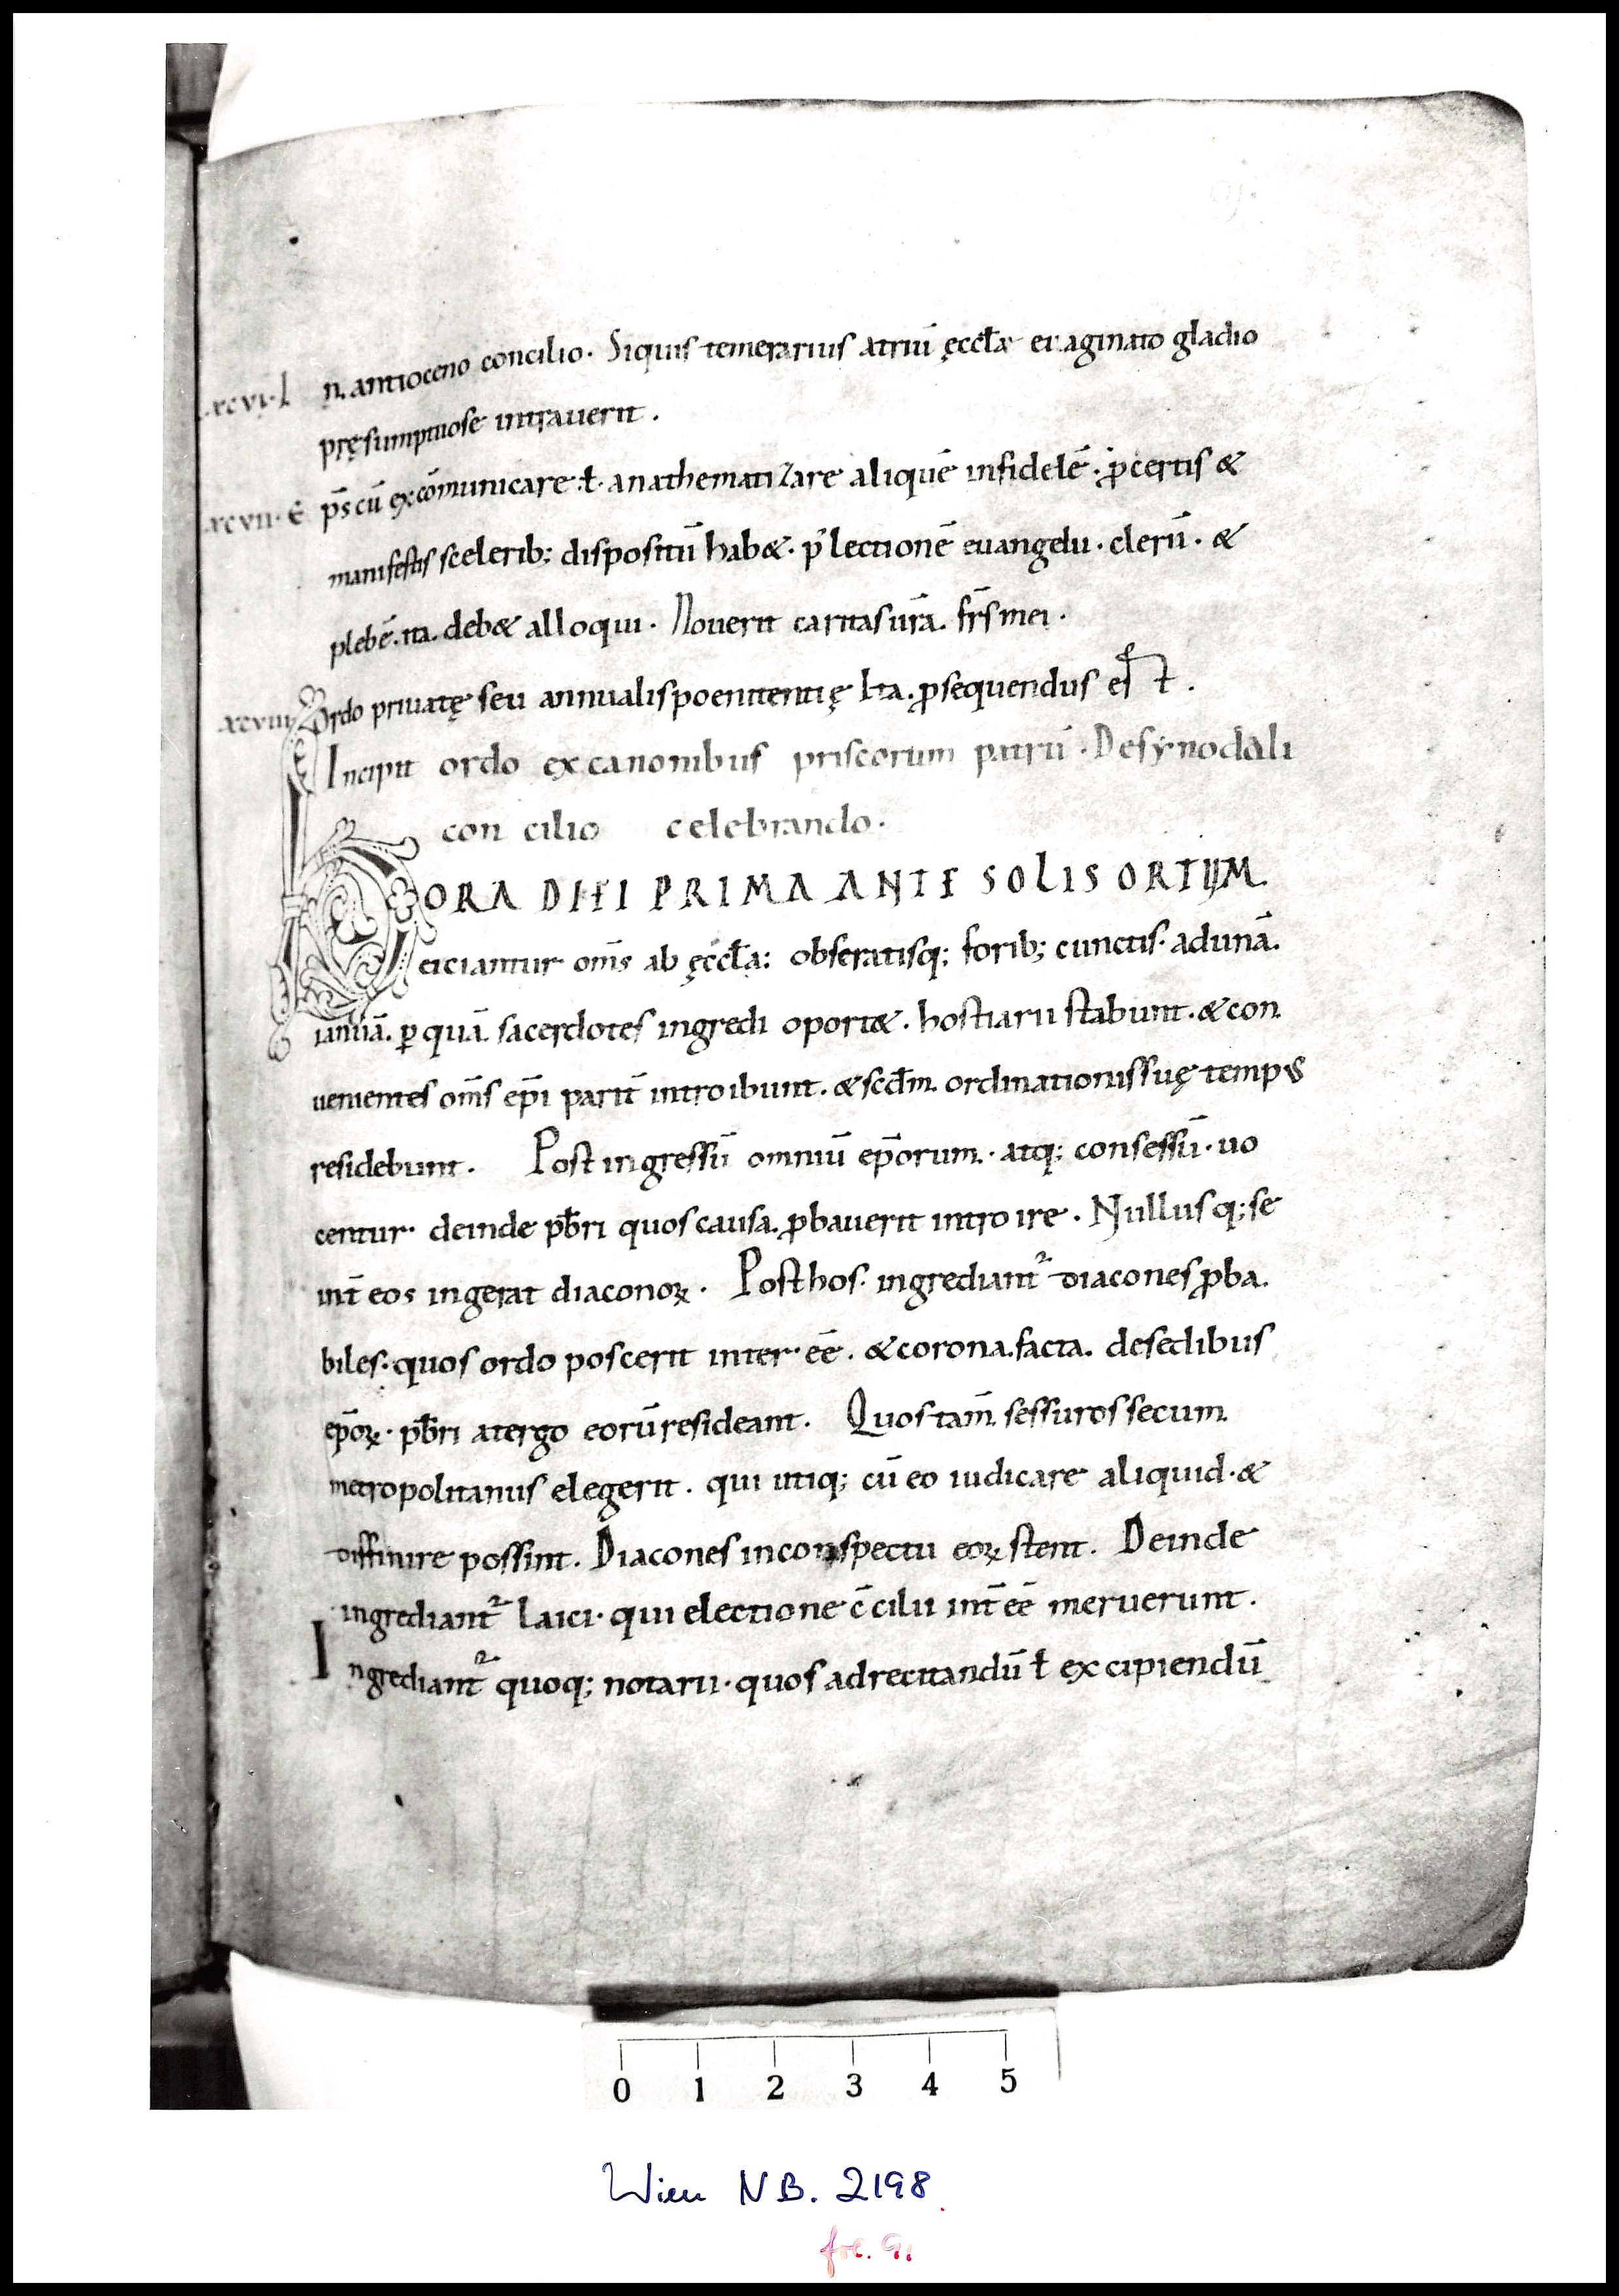 .xcvi. In antioceno concilio. Siquis temerarius atriū ęccłæ euaginato gladio
pręsumptuose intrauerit.
.xcvii. Ep̄s cū excōmunicare ł. anathematizare aliquē infidelē. p̄ certis &
manifestis sceleribꝫ dispositū hab&. p' lectionē euangelii. clerū. &
plebē. ita. deb& alloqui. Nouerit caritas ur̄a. fr̄s mei.
.xcviii. Ordo priuatę seu annualis poenitentię Ita. ꝓsequendus est.
Incipit ordo ex canonibus priscorum patrū. De synodali
concilio celebrando.
HORA DIEI PRIMA ANTE SOLIS ORTUM.
eiciantur om̄s ab ęccła: obseratisqꝫ foribꝫ cunctis. ad unā.
ianuā. ꝑ quā. sacerdotes ingredi oport&. hostiarii stabunt. & con
uenientes om̄s ep̄i parit̄ introibunt. & scd̄m. ordinationis suę tempus
residebunt. Post ingressū omniū ep̄orum. atqꝫ consessū. uo
centur. deinde pb̄ri quos causa. ꝓbauerit introire. Nullusqꝫ se
int̄ eos ingerat diaconoꝝ. Post hos. ingrediant᷑ diacones ꝓba.
biles. quos ordo poscerit inter. eē. & corona. facta. de sedibus
ep̄oꝝ. pb̄ri a tergo eorū resideant. Quos tam̄. sessuros secum
metropolitanus elegerit. qui utiqꝫ cū eo iudicare aliquid. &
diffinire possint. Diacones in conspectu eoꝝ stent. Deinde
ingrediant᷑ laici. qui electione c̄cilii int̄ eē meruerunt.
Ingrediant᷑ quoqꝫ notarii. quos ad recitandū ł excipiendū
0 1 2 3 4 5
Wien NB. 2198.
fol. 91